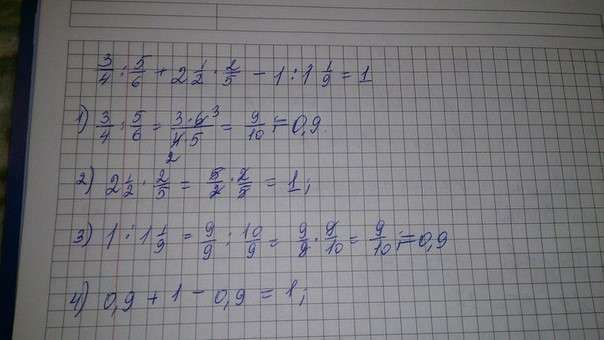 3/4 : 5/6 + 2 1/2 · 2/5 - 1 : 1 1/9 = 1
1) 3/4 : 5/6 = 3·6 3/4·5 2 = 9/10 = 0,9
2) 2 1/2 · 2/5 = 5/2 · 2/5 = 1;
3) 1 : 1 1/9 = 9/9 : 10/9 = 9/9 · 9/10 = 9/10 = 0,9
4) 0,9 + 1 - 0,9 = 1;